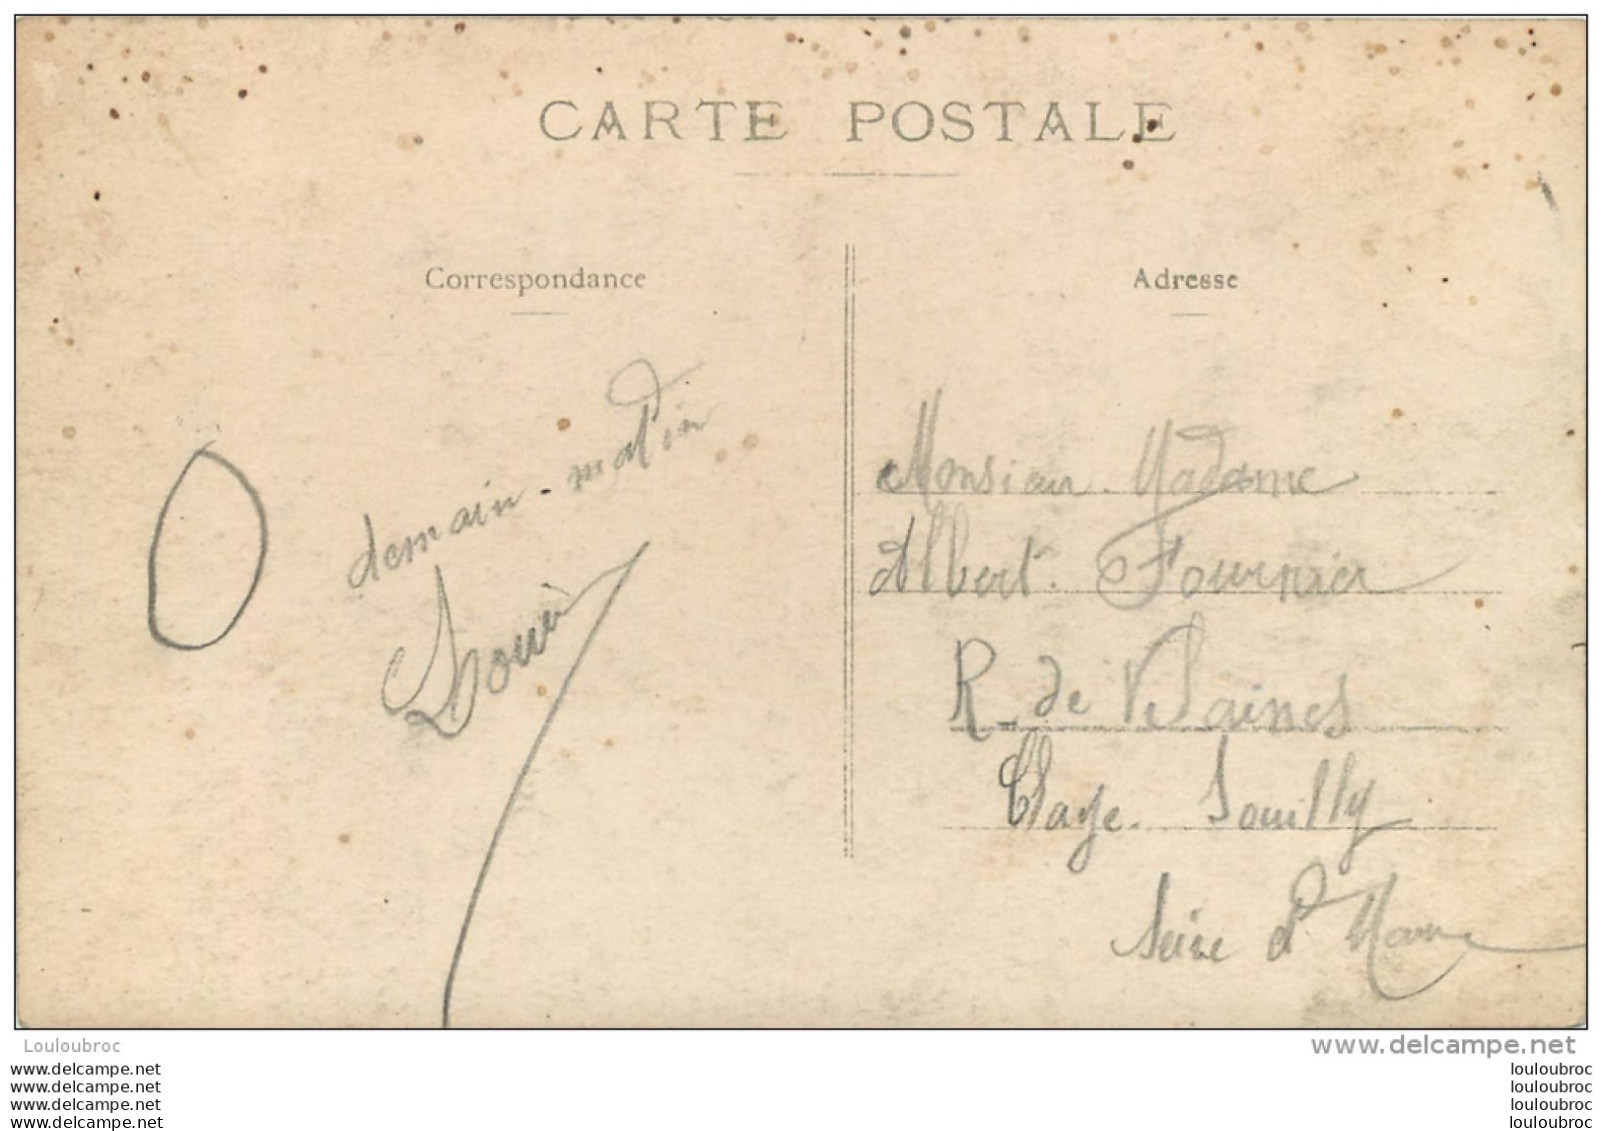 CARTE POSTALE
Correspondance
Adresse
demain-matin
Monsieur. Madame
Albert. Fournier
R. de
Claye. Souilly
Seine et Marne
Louloubroc
www.delcampe.net
www.delcampe.net
www.delcampe.net
www.delcampe.net
www.delcampe.net
louloubroc
louloubroc
louloubroc
louloubroc